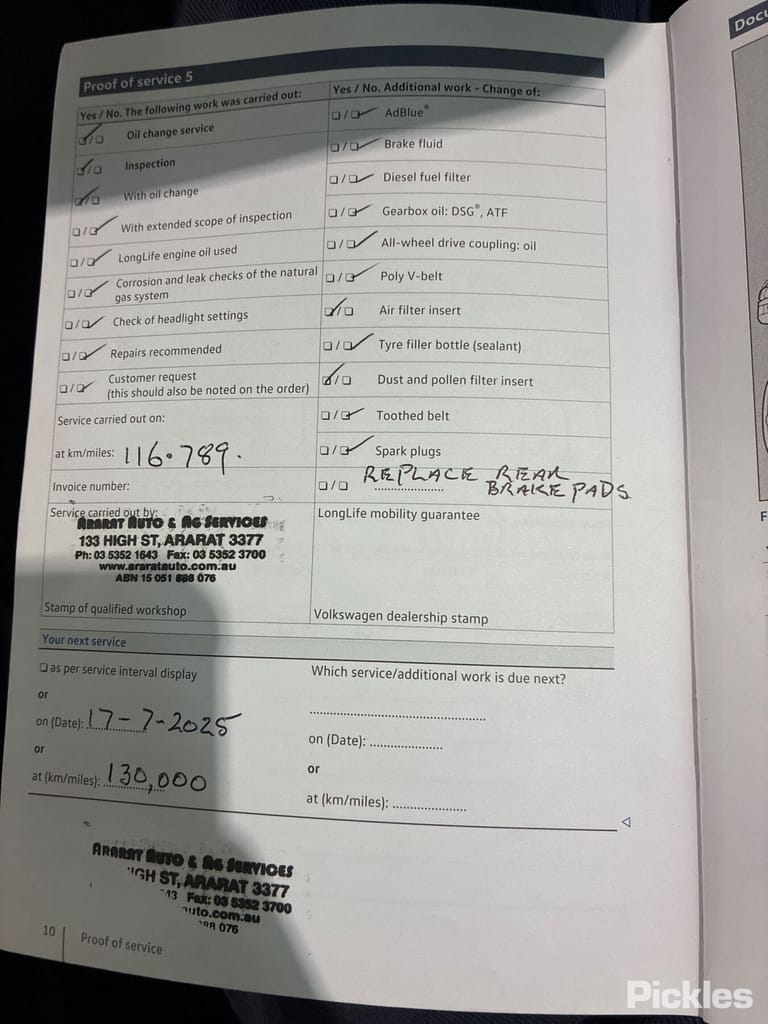 Docu
Proof of service 5
Yes / No. The following work was carried out:
Oil change service
Inspection
With oil change
With extended scope of inspection
LongLife engine oil used
Corrosion and leak checks of the natural
gas system
Check of headlight settings
Repairs recommended
Customer request
(this should also be noted on the order)
Service carried out on:
at km/miles: 116.789.
Invoice number:
Service carried out by:
ARARAT AUTO & AG SERVICES
133 HIGH ST, ARARAT 3377
Ph: 03 5352 1643 Fax: 03 5352 3700
www.araratauto.com.au
ABN 15 051 888 076
Stamp of qualified workshop
Yes / No. Additional work - Change of:
AdBlue®
Brake fluid
Diesel fuel filter
Gearbox oil: DSG®, ATF
All-wheel drive coupling: oil
Poly V-belt
Air filter insert
Tyre filler bottle (sealant)
Dust and pollen filter insert
Toothed belt
Spark plugs
REPLACE REAR
BRAKE PADS
LongLife mobility guarantee
Volkswagen dealership stamp
Your next service
as per service interval display
or
on (Date): 17-7-2025
or
at (km/miles): 130,000
Which service/additional work is due next?
on (Date):
or
at (km/miles):
ARARAT AUTO & AG SERVICES
IGH ST, ARARAT 3377
43 Fax: 03 5352 3700
uto.com.au
076
10 Proof of service
Pickles